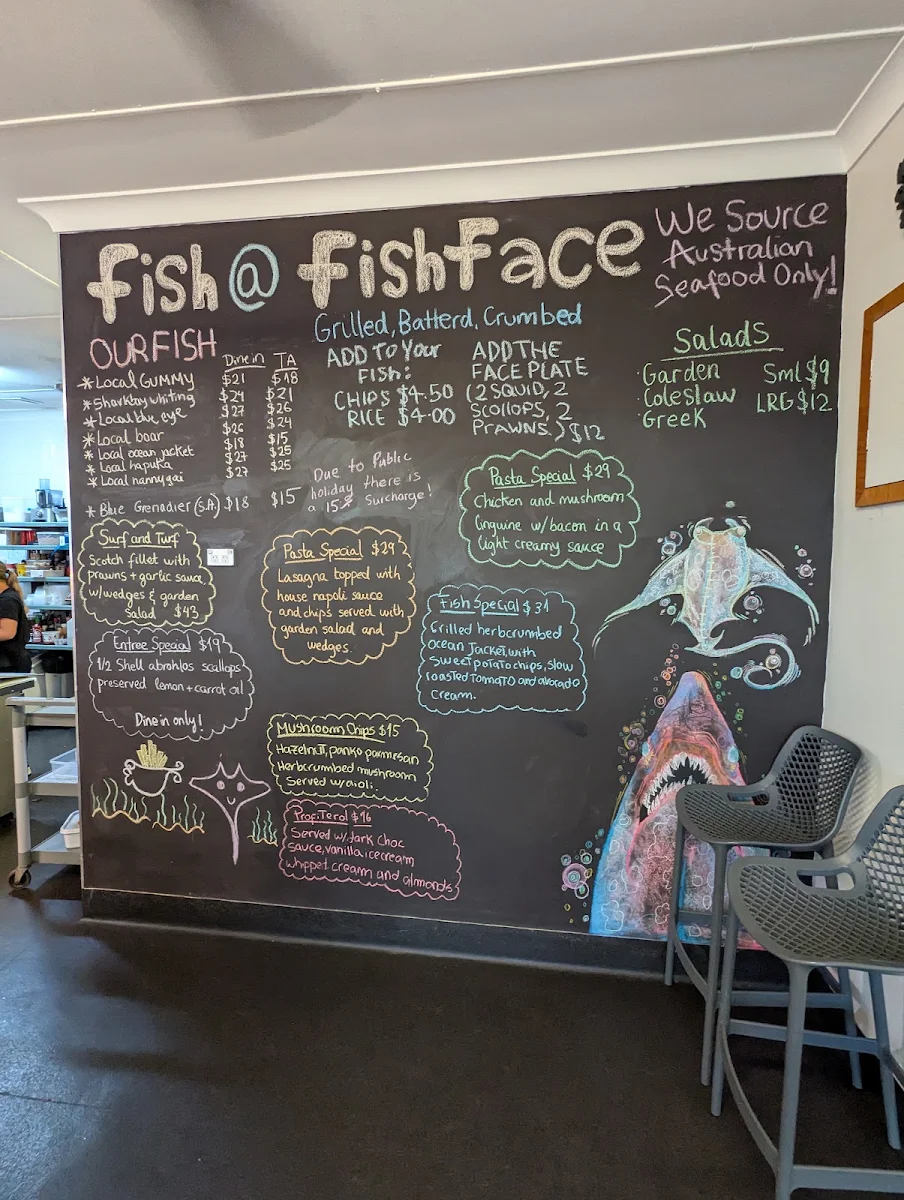 fish @ fishface
We Source
Australian
Seafood Only!
OUR FISH
Dine in TA
* Local GUMMY $21 $18
* Sharkbay whiting $24 $21
* Local blue eye $27 $26
* Local boar $26 $24
* Local ocean jacket $18 $15
* Local hapuka $27 $25
* Local nannygai $27 $25
* Blue Grenadier (S.A.) $18 $15
Grilled, Batterd, Crumbed
ADD TO YOUR
FISH:
CHIPS $4.50
RICE $4.00
ADD THE
FACE PLATE
(2 SQUID, 2
SCOLLOPS, 2
PRAWNS) $12
Salads
Garden
Coleslaw
Greek
Sml $9
LRG $12
Due to Public
holiday there is
a 15% Surcharge!
Pasta Special $29
Chicken and mushroom
linguine w/bacon in a
light creamy sauce
Surf and Turf
Scotch fillet with
prawns + garlic sauce
w/wedges & garden
Salad $43
Pasta Special $29
Lasagna topped with
house napoli sauce
and chips served with
garden salad and
wedges.
Fish Special $31
Grilled herbcrumbed
ocean Jacket, with
sweet potato chips, slow
roasted tomato and avorado
cream.
Entree Special $19
1/2 Shell abrohlos scallops
preserved lemon + carrot oil
Dine in only!
Mushroom Chips $15
Hazelnut, panko parmesan
Herbcrumbed mushroom
Served w/aioli.
Profiterol $16
Served w/dark choc
sauce, vanilla icecream
whippet cream and almonds